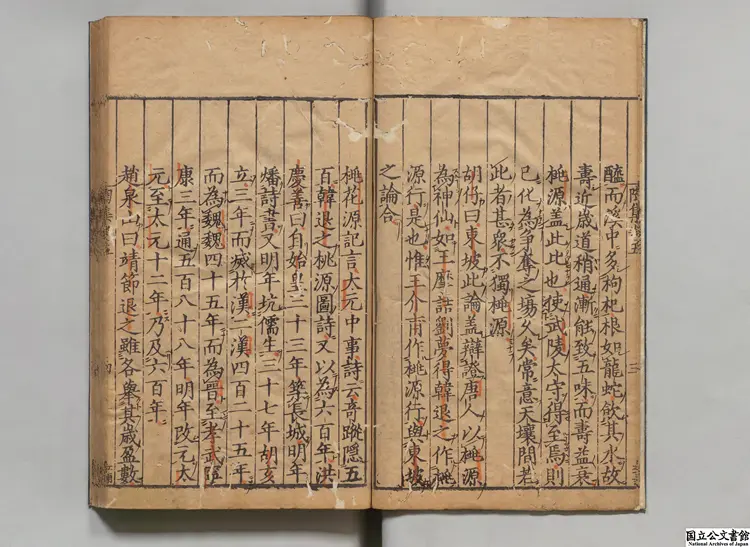 醯而溪中多枸杞根如龍蛇飲其水故
壽近歲道稍通漸能致五味而壽益衰
桃源蓋此比也使武陵太守得至焉則
已化為爭奪之場久矣常意天壤間若
此者甚衆不獨桃源
胡仔曰東坡此論蓋辯證唐人以桃源
為神仙如王摩詰劉夢得韓退之作桃
源行是也惟王介甫作桃源行與東坡
之論合
桃花源記言太元中事詩云奇蹤隱五
百韓退之桃源圖詩又以為六百年洪
慶善曰自始皇三十三年築長城明年
燔詩書又明年坑儒生三十七年胡亥
立三年而滅於漢二漢四百二十五年
而為魏魏四十五年而為晉至孝武寧
康三年通五百八十八年明年改元太
元至太元十二年乃及六百年
趙泉山曰靖節退之雖各舉其歲盈數
国立公文書館
National Archives of Japan